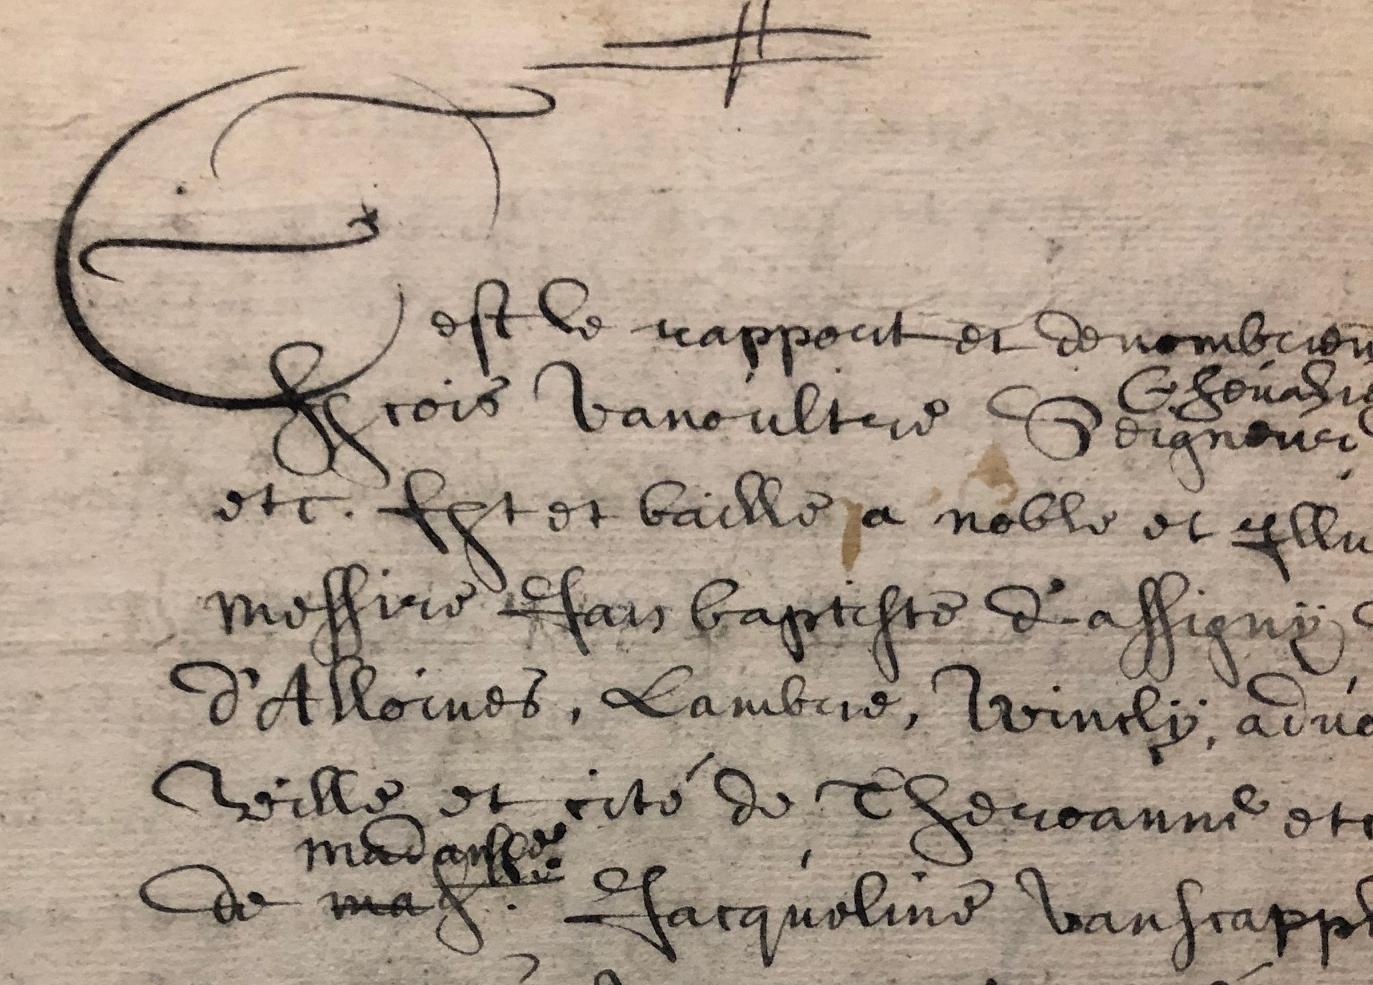 C est le rapport et denombrem
Chevalie
frcois Vanoultre Seigneur
etc. fyt et baille a noble et yllu
messire Jan baptiste d'assigny
d'Alloines, Lambre, Wincly, advo
Ville et cité de Theroanne etc
madamlle
de ma Jacqueline vanscapp